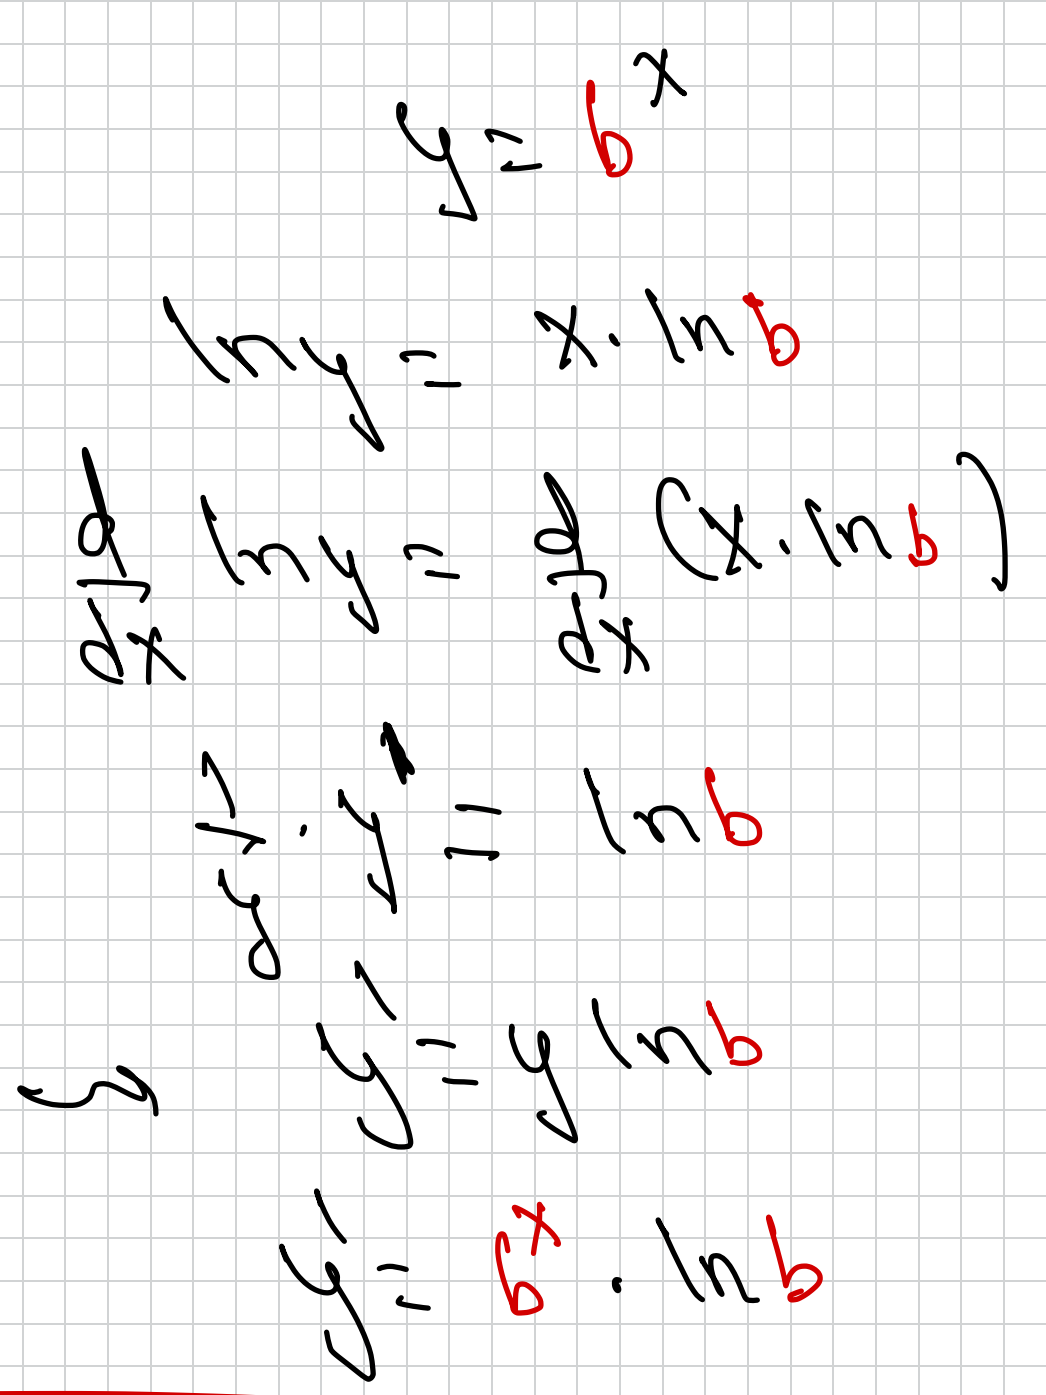 y = b^x
ln y = x · ln b
d/dx ln y = d/dx (x · ln b)
1/y · y' = ln b
y' = y ln b
y' = b^x · ln b